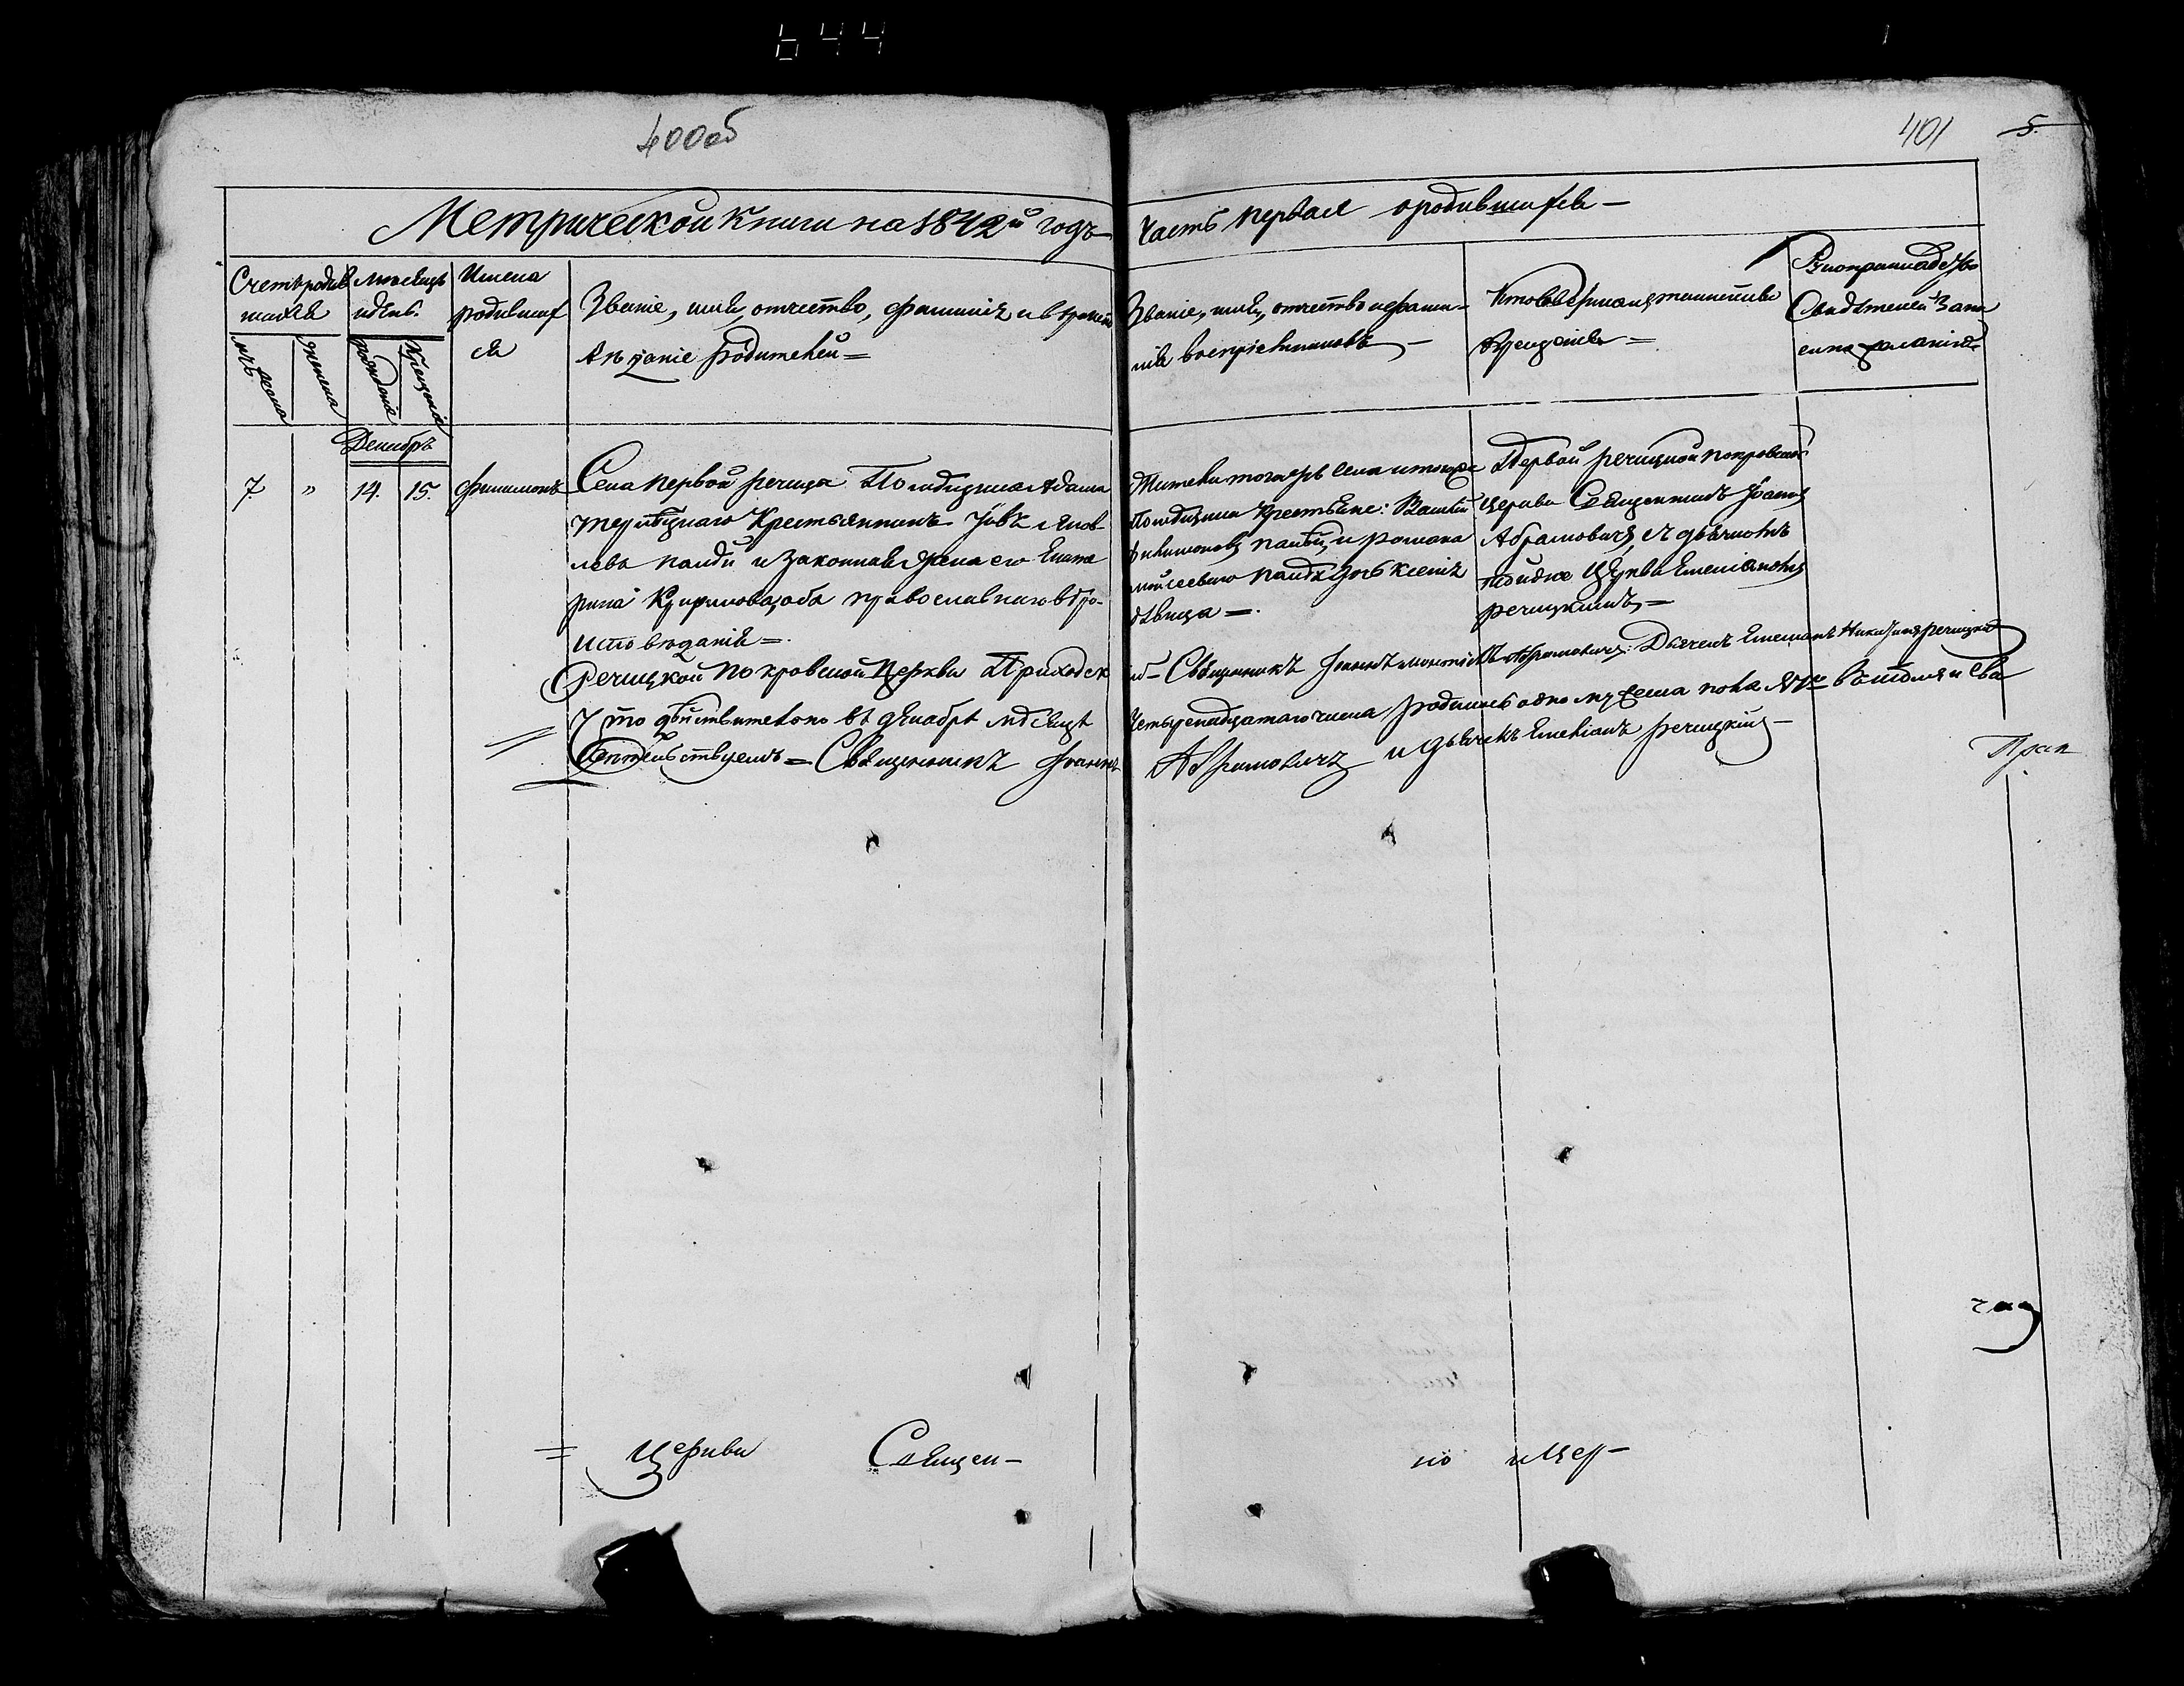 644
400об
401 5.
Метрической книги на 1842й годъ
Часть первая о родившихся
Счетъ родив
шихся
Мѣсяцъ
и день.
Имена
родивших
ся
Званіе, имя, отчество, фамилія и вѣроиспо
вѣданіе родителей =
Званіе, имя, отчество и фами-
лія воспріемниковъ
Кто совершилъ таинство
крещенія =
Рукоприкладство
Свидѣтелей запи
си по желанію
мужеска
женска
рожденія
крещенія
Декабрь
7
"
14.
15.
Филимонъ
Села первой речица Помѣщика Адама
Крестьянинъ Іовъ Яков
лева и законная жена его Екате
рина Кирилова, оба православнаго вѣро-
исповѣданія =.
Жители тогожъ села и тогоже
Помѣщика Крестьяне: Василій
Филимоновъ и романа
моисеевого Ксенія
дѣвица =.
Первой речицкой покровской
церкви Священникъ Іоаннъ
Абрамовичъ, съ дьячкомъ
тойже Церкви Емеліаномъ
речицкимъ =
Речицкой покровской Церкви Приходск
ій Священникъ Іоаннъ Абрамовичъ. Дьячекъ Емеліанъ речицкій
Что дѣйствительно въ декабрѣ мѣсяцѣ
Четырнадцатаго числа родилось одно мужеска пола въ томъ и сви
дѣтельствуемъ = Священникъ Іоаннъ
Абрамовичъ и дьячекъ Емеліанъ речицкій
Церкви Священ-
но и Цер-